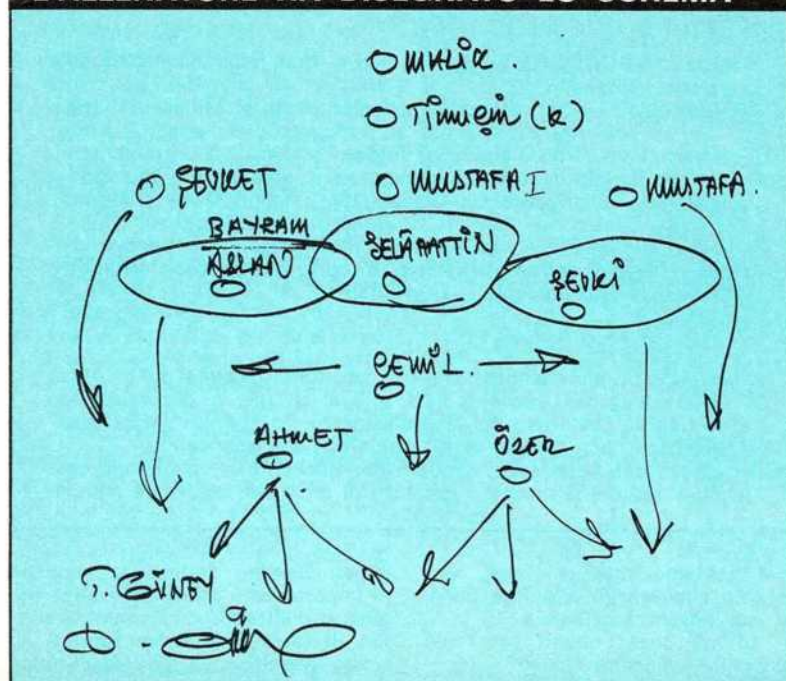 MALİK.
Timuçin (k)
ŞEVKET
MUSTAFA I
MUSTAFA.
BAYRAM
ASLAN
SELÂHATTİN
ŞEVKİ
CEMİL.
AHMET
ÖZER
T. GÜNEY